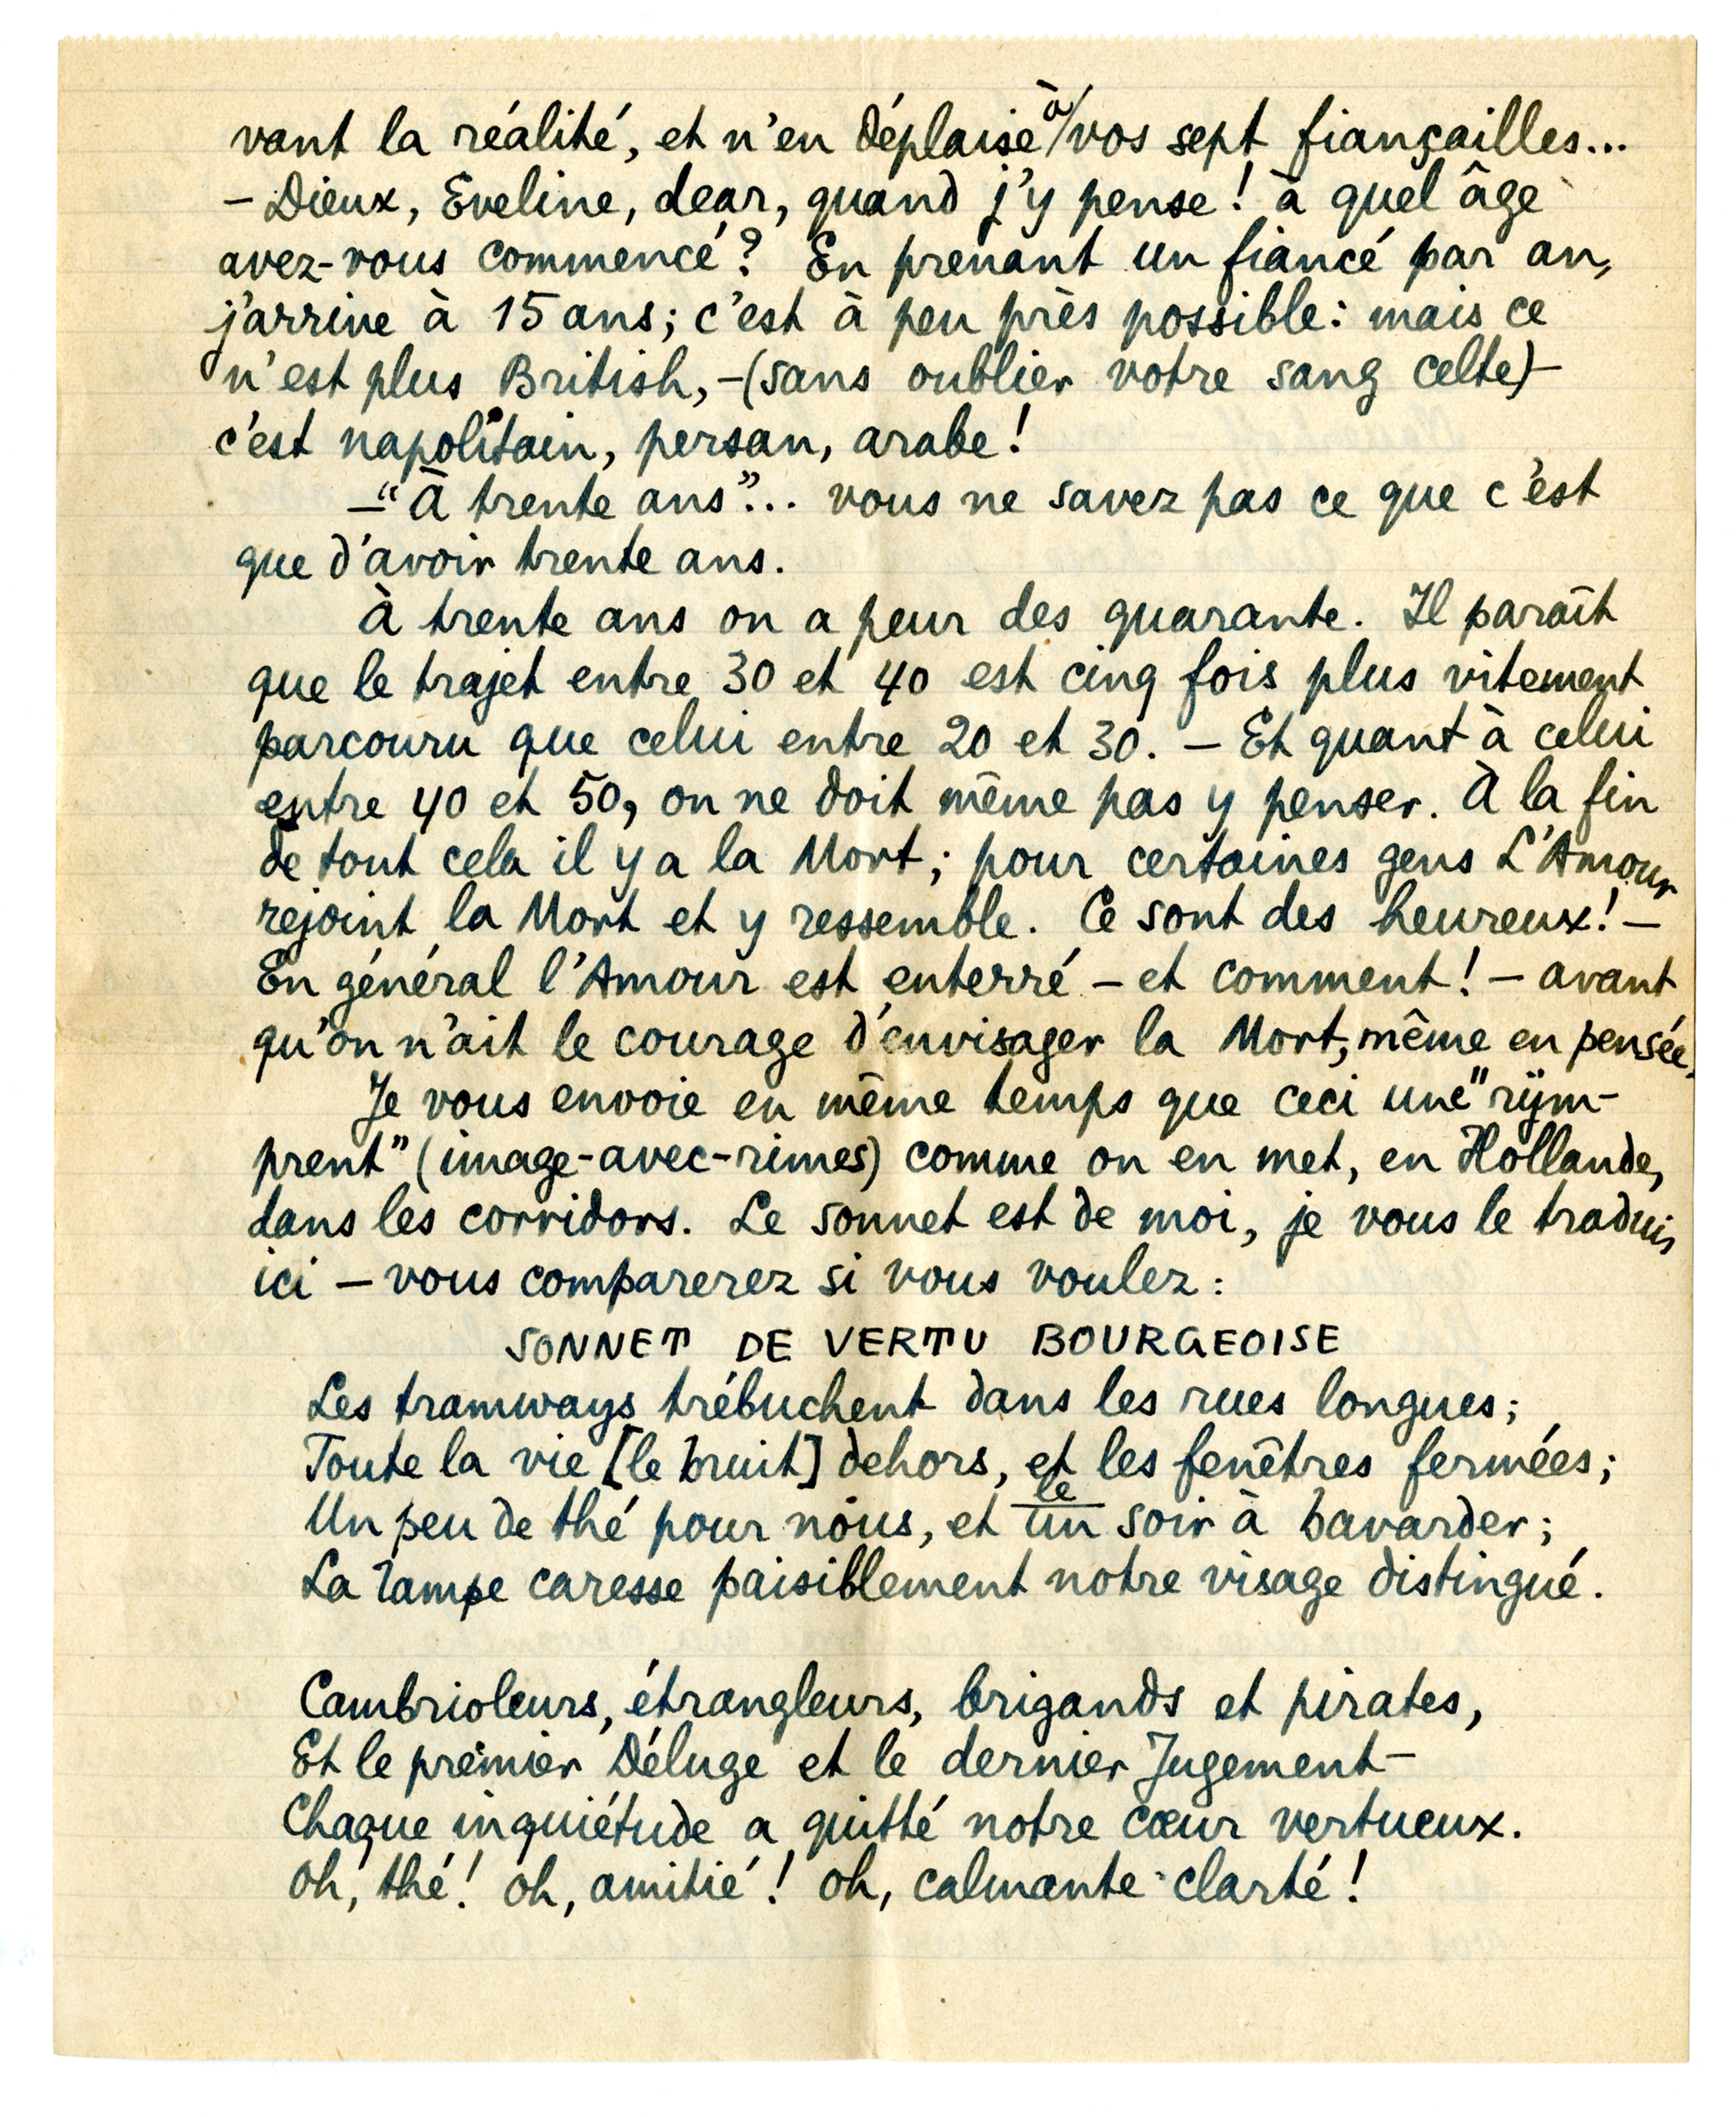 vant la réalité, et n'en déplaise à vos sept fiançailles...
– Dieux, Eveline, dear, quand j'y pense! à quel âge
avez-vous commencé? En prenant un fiancé par an,
j'arrive à 15 ans; c'est à peu près possible: mais ce
n'est plus British, – (sans oublier votre sang celte) –
c'est napolitain, persan, arabe!
– "À trente ans"... vous ne savez pas ce que c'est
que d'avoir trente ans.
À trente ans on a peur des quarante. Il paraît
que le trajet entre 30 et 40 est cinq fois plus vitement
parcouru que celui entre 20 et 30. – Et quant à celui
entre 40 et 50, on ne doit même pas y penser. À la fin
de tout cela il y a la Mort; pour certaines gens L'Amour
rejoint la Mort et y ressemble. Ce sont des heureux! –
En général l'Amour est enterré – et comment! – avant
qu'on n'ait le courage d'envisager la Mort, même en pensée.
Je vous envoie en même temps que ceci une "rijm-
prent" (image-avec-rimes) comme on en met, en Hollande,
dans les corridors. Le sonnet est de moi, je vous le traduis
ici – vous comparerez si vous voulez:
SONNET DE VERTU BOURGEOISE
Les tramways trébuchent dans les rues longues;
Toute la vie [le bruit] dehors, et les fenêtres fermées;
Un peu de thé pour nous, et un le soir à bavarder;
La lampe caresse paisiblement notre visage distingué.
Cambrioleurs, étrangleurs, brigands et pirates,
Et le premier Déluge et le dernier Jugement –
Chaque inquiétude a quitté notre cœur vertueux.
Oh, thé! oh, amitié! oh, calmante clarté!